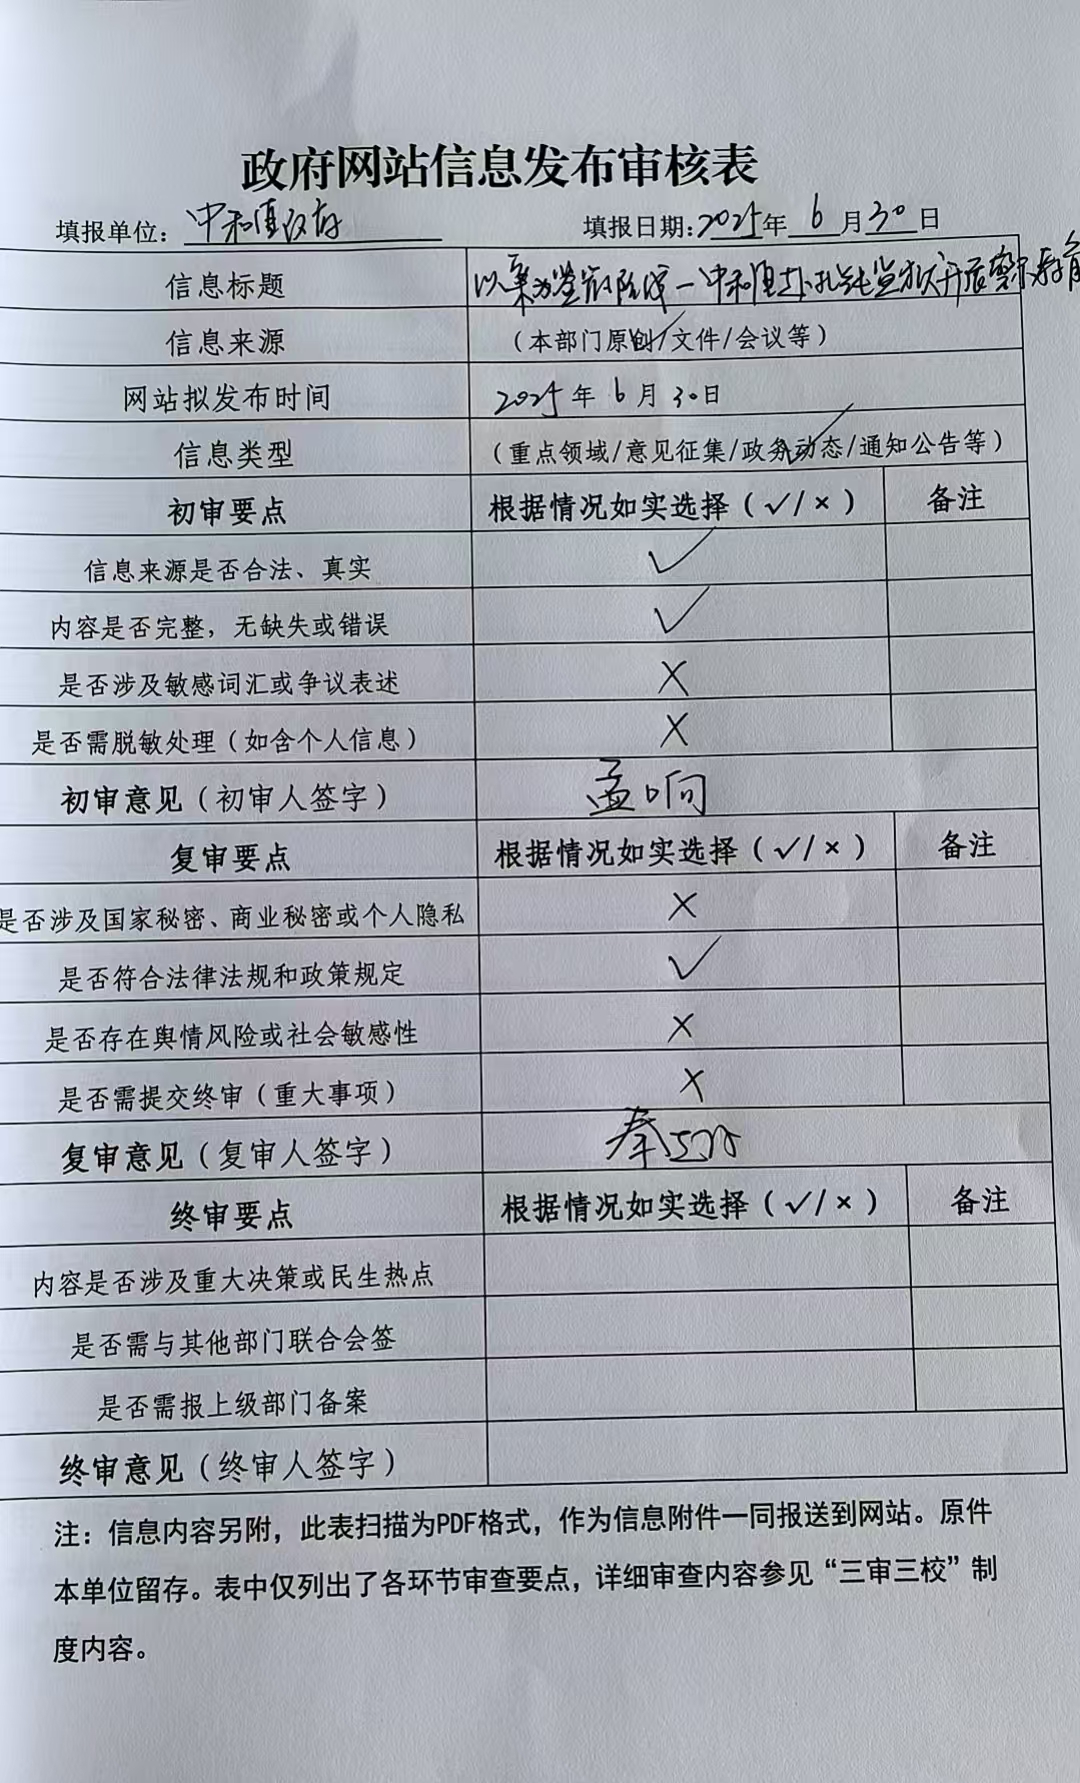 政府网站信息发布审核表
填报单位：中和镇政府 填报日期:2025年6月30日
信息标题 以案为鉴 中和镇赴 监狱开展警示教育
信息来源 （本部门原创/文件/会议等）
网站拟发布时间 2025年6月30日
信息类型 （重点领域/意见征集/政务动态/通知公告等）
初审要点 根据情况如实选择（✓/×） 备注
信息来源是否合法、真实 ✓
内容是否完整，无缺失或错误 ✓
是否涉及敏感词汇或争议表述 ×
是否需脱敏处理（如含个人信息） ×
初审意见（初审人签字） 孟响
复审要点 根据情况如实选择（✓/×） 备注
是否涉及国家秘密、商业秘密或个人隐私 ×
是否符合法律法规和政策规定 ✓
是否存在舆情风险或社会敏感性 ×
是否需提交终审（重大事项） ×
复审意见（复审人签字） 秦
终审要点 根据情况如实选择（✓/×） 备注
内容是否涉及重大决策或民生热点
是否需与其他部门联合会签
是否需报上级部门备案
终审意见（终审人签字）
注：信息内容另附，此表扫描为PDF格式，作为信息附件一同报送到网站。原件
本单位留存。表中仅列出了各环节审查要点，详细审查内容参见“三审三校”制
度内容。